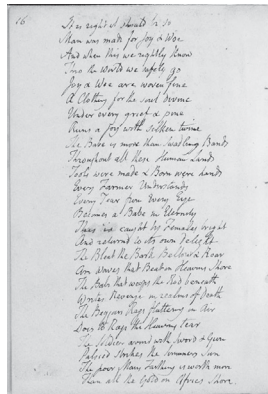 16
It is right it should be so
Man was made for Joy & Woe
And when this we rightly know
Thro the World we safely go
Joy & Woe are woven fine
A Clothing for the soul divine
Under every grief & pine
Runs a joy with silken twine
The Babe is more than Swadling Bands
Throughout all these Human Lands
Tools were made & Born were hands
Every Farmer Understands
Every Tear from Every Eye
Becomes a Babe in Eternity
This is caught by Females bright
And returnd to its own delight
The Bleat the Bark Bellow & Roar
Are Waves that Beat on Heavens Shore
The Babe that weeps the Rod beneath
Writes Revenge in realms of Death
The Beggars Rags fluttering in Air
Does to Rags the Heavens tear
The Soldier armd with Sword & Gun
Palsied strikes the Summers Sun
The poor Mans Farthing is worth more
Than all the Gold on Africs Shore